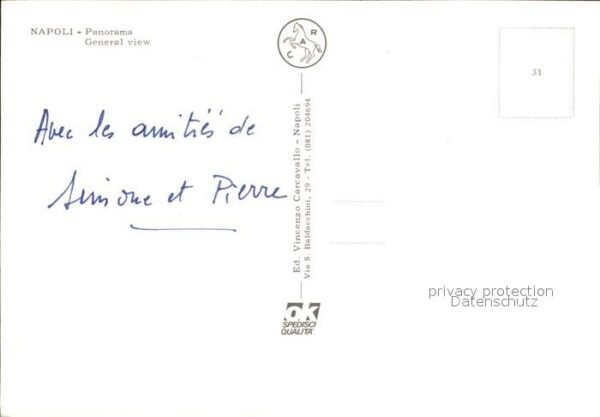 NAPOLI - Panorama
General view
C A R
31
Avec les amitiés de
Simone et Pierre
Ed. Vincenzo Carcavallo - Napoli
Via S. Baldacchini, 29 - Tel. (081) 204694
privacy protection
Datenschutz
ok
SPEDISCI
QUALITÀ